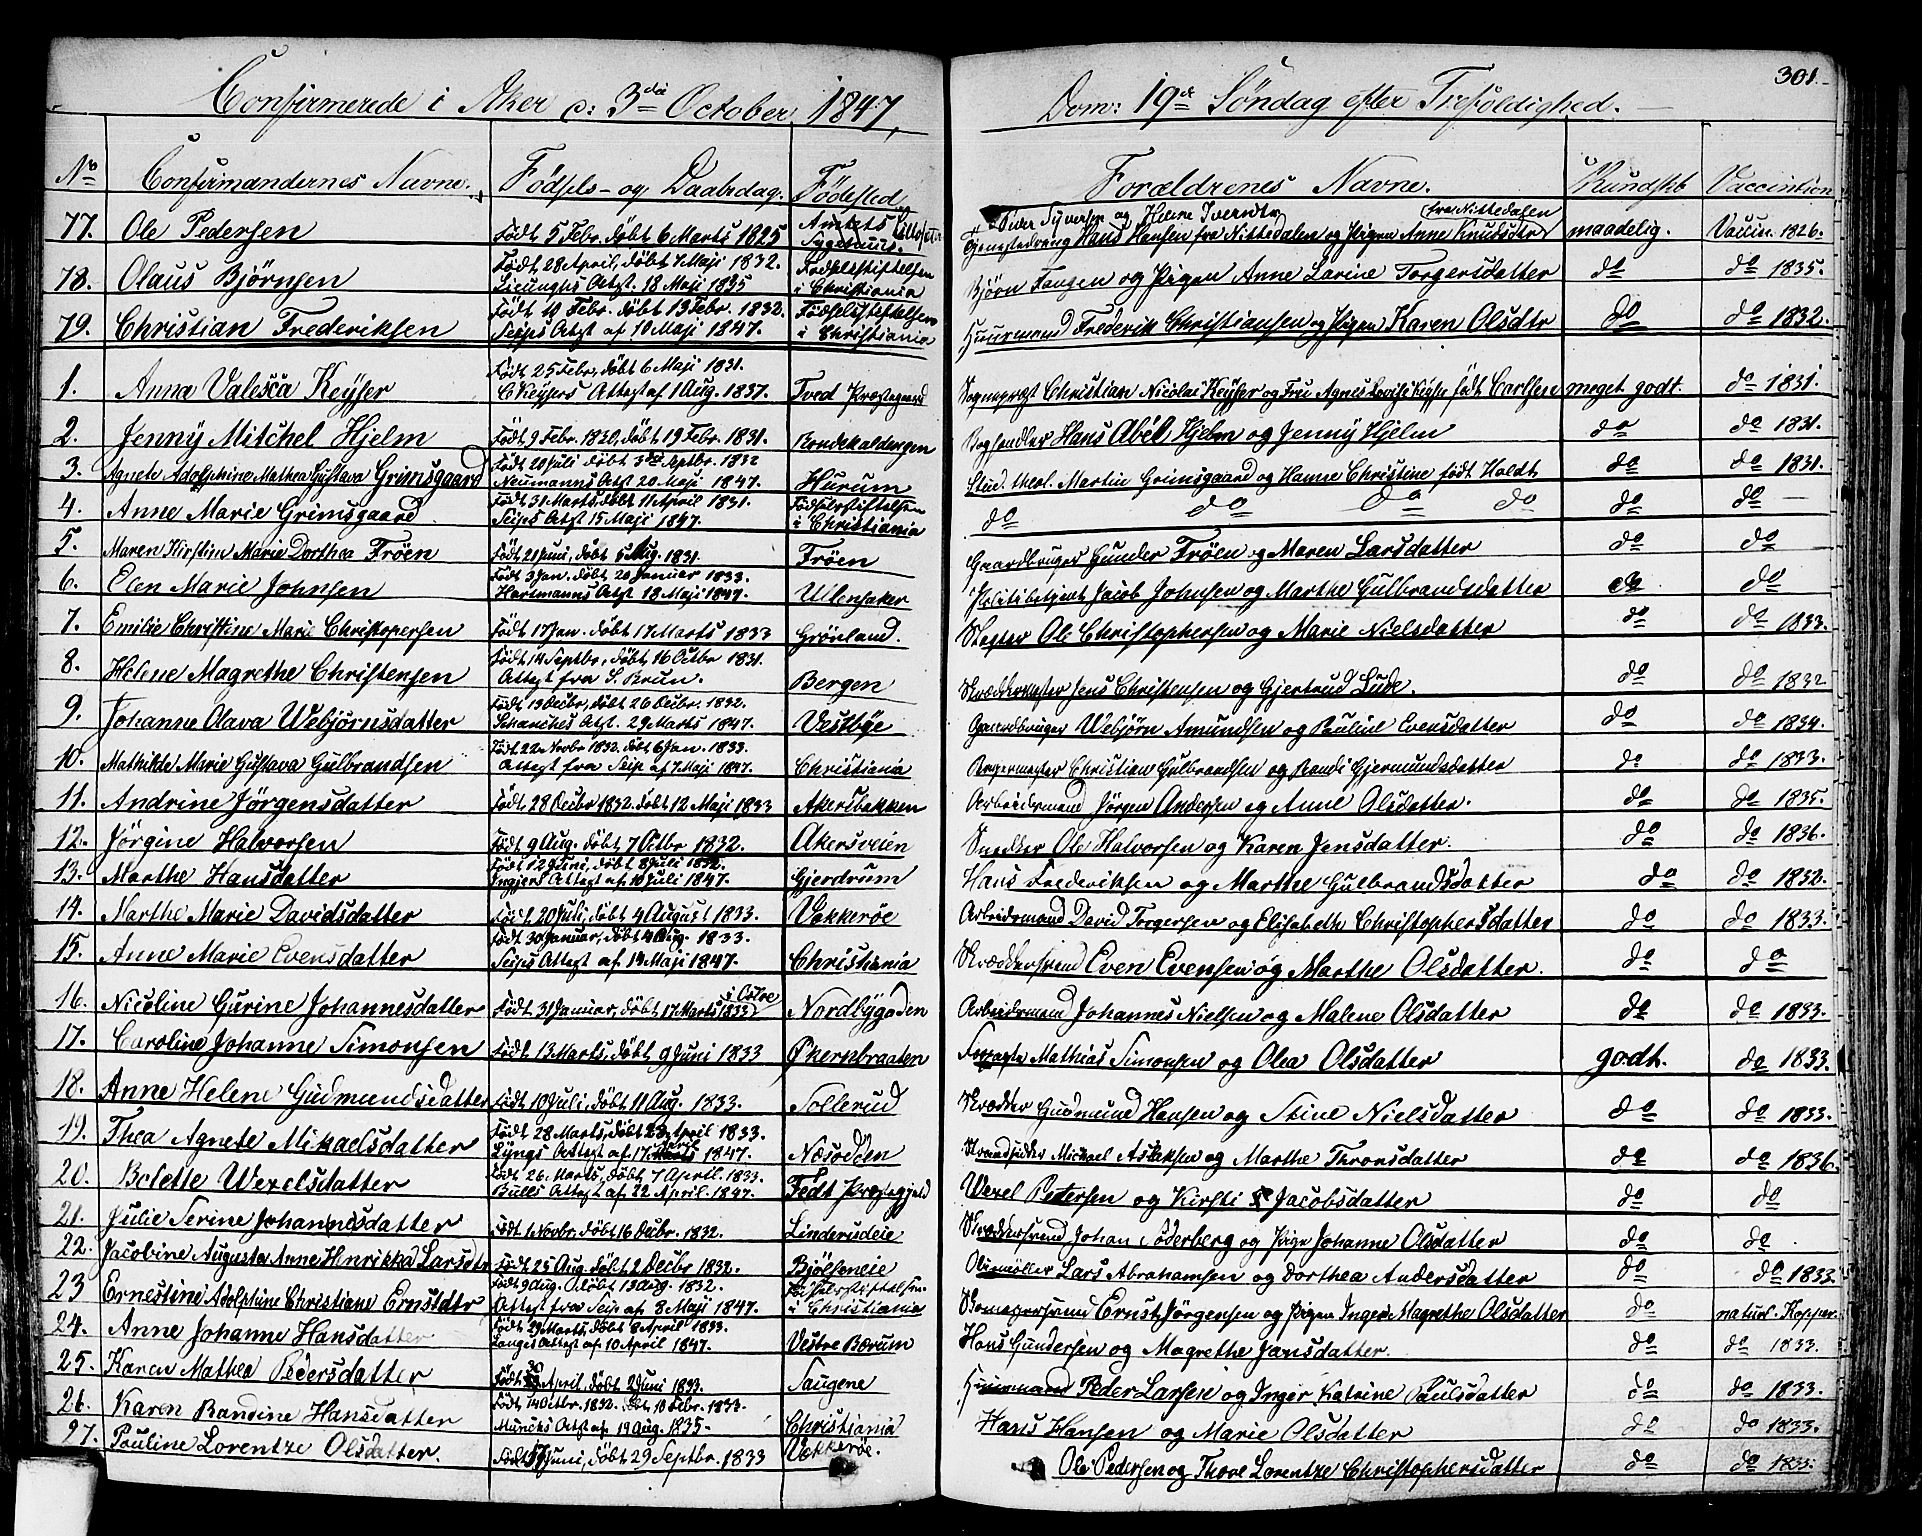 301.
Confirmerede i Aker d: 3die October 1847,
Dom: 19de Søndag efter Trefoldighed.
No Confirmandernes Navne. Fødsels- og Daabsdag. Fødested Forældrenes Navne. Kundskb Vaccintion
77. Ole Pedersen Født 5 Febr. døbt 6 Marts 1825 Amtets Sygehuus. Peder Syversen og Helene Iversdtr
Tjenestedreng Hans Hansen fra Nittedalen og Pigen Anne Knudsdtr fra Nittedalen maadelig. Vaccin. 1826.
78. Olaus Bjørnsen Født 28 April, døbt 7 Maji 1832. Attest. 18 Maji 1835 Fødselsstiftelsen i Christiania Bjørn Fangen og Pigen Anne Larine Torgersdatter do do 1835.
79. Christian Frederiksen Født 10 Febr. døbt 13 Febr. 1832. Seips Attest af 10 Maji 1847. Fødselsstiftelsen i Christiania Huusmand Frederik Christiansen og Pigen Karen Olsdtr do do 1832.
1. Anna Valesca Keyser Født 25 Febr, døbt 6 Maji 1831. C Keysers Attest af 1 Aug. 1837. Tved Præstegaard Sognepræst Christian Nicolai Keyser og Fru Agnes Lovise Keyser født Carlsen meget godt. do 1831.
2. Jenny Mitchel Hjelm Født 9 Febr. 1830, døbt 19 Febr. 1831. Boghandler Hans Abel Hjelm og Jenny Hjelm do do 1831.
3. Agnete Adolphine Mathea Gustava Grimsgaard Født 20 Juli døbt 3 Septbr. 1832 Neumanns Attst 20 Maji 1847. Hurum Stud. theol. Martin Grimsgaard og Hanne Christine født Holdt do do 1831.
4. Anne Marie Grimsgaard Født 31 Marts, døbt 11 April 1831. Seips Attst 15 Maji 1847. Fødselsstiftelsen i Christiania do do do do do do —
5. Maren Kirstine Marie Dorthea Frøen Født 21 Juni, døbt 5 Aug. 1831. Frøen Gaardbruger Gunder Frøen og Maren Larsdatter do do
6. Elen Marie Johnsen Født 3 Jan. døbt 20 Januar 1833. Hartmanns Attst 18 Maji 1847. Ullensaker Politibetjent Jacob Johnsen og Marthe Gulbrandsdatter do do
7. Emilie Christine Marie Christophersen Født 17 Jan. døbt 17 Marts 1833 Grønland. Ole Christophersen og Marie Nielsdatter do do 1833.
8. Helene Magrethe Christensen Født 14 Septbr, døbt 16 Octbr 1831. Attest fra S. Brun. Bergen Skræddermester Jens Christensen og Gjertrud Lude. do do 1832
9. Johanne Olava Webjørnsdatter Født 13 Decbr, døbt 26 Decbr. 1832. Attst. 29 Marts 1847. Vestbye Gaardbruger Webjørn Amundsen og Pauline Evensdatter do do 1834.
10. Mathilde Marie Gustava Gulbrandsen Født 22 Novbr 1832. døbt 6 Jan. 1833. Attest fra Seip af 7 Maji 1847. Christiania Christian Gulbrandsen og Randi Gjermundsdatter do do 1833.
11. Andrine Jørgensdatter Født 28 Decbr 1832. døbt 12 Maji 1833 Akersbakken Arbeidsmand Jørgen Andersen og Anne Olsdatter. do do 1835.
12. Jørgine Halvorsen Født 9 Aug. døbt 7 Octbr 1832. Akersveien Snedker Ole Halvorsen og Karen Jensdatter. do do 1836.
13. Marthe Hansdatter Født 12 Juni, døbt 8 Juli 1832. Attest af 10 Juli 1847. Gjerdrum Hans Frederiksen og Marthe Gulbrandsdatter do do 1832.
14. Marthe Marie Davidsdatter Født 20 Juli, døbt 4 August 1833. Vækkerøe Arbeidsmand David Torgersen og Elisabeth Christophersdatter do do 1833.
15. Anne Marie Evensdatter Født 30 Januar, døbt 4 Aug. 1833. Seips Attest af 14 Maji 1847. Christiania Skræddersvend Even Evensen og Marthe Olsdatter. do do
16. Nicoline Gurine Johannesdatter Født 31 Januar, døbt 17 Marts 1833 Nordbygaden Arbeidsmand Johannes Nielsen og Malene Olsdatter do do 1833.
17. Caroline Johanne Simonsen Født 13 Marts, døbt 9 Juni 1833 Økernbraaten Mathias Simonsen og Olea Olsdatter godt. do 1833.
18. Anne Helene Gudmundsdatter Født 10 Juli, døbt 11 Aug. 1833. Sollerud Skrædder Gudmund Hansen og Stine Nielsdatter do do 1833.
19. Thea Agnete Mikaelsdatter Født 28 Marts, døbt 23 April 1833. Lyngs Attest af 17 April 1847. Næsodden Strandsidder Michael Aslaksen og Marthe Thronsdatter do do 1836.
20. Bolette Wexelsdatter Født 26 Marts, døbt 7 April. 1833. Bulls Attest af. 22 April. 1847. Fedt Præstegjeld Wexel Pedersen og Kirsti Jacobsdatter do do
21. Julie Serine Johannesdatter Født 1 Novbr, døbt 16 Decbr. 1832. Linderudeie Skræddersvend Johan Søderberg og Pige Johanne Olsdatter do do
22. Jacobine Augusta Anne Henrikka Larsdtr Født 25 Aug. døbt 2 Decbr 1832. Bjølseneie Oliemøller Lars Abrahamsen og Dorthea Andersdatter do do 1833.
23 Ernestine Adolphine Christiane Ernstdtr Født 9 Aug. døbt 13 Aug. 1832. Attest fra Seip af 8 Maji 1847. Fødselsstiftelsen i Christiania Skomagersvend Ernst Jørgensen og Pigen Inger Magrethe Olsdatter do naturl. Kopper.
24. Anne Johanne Hansdatter Født 29 Marts, døbt 8 April 1833. Langes Attest af. 10 April 1847. Vestre Bærum Hans Gundersen og Magrethe Jansdatter. do do 1833.
25. Karen Mathea Pedersdatter Født 30 April, døbt 2 Juni 1833. Saugene Huusmand Peder Larsen og Inger Katrine Paulsdatter do do 1833.
26. Karen Bandine Hansdatter Født 14 Octbr. 1832. døbt 10 Febr. 1833. Muncks Attst af. 19 Aug. 1835. Christiania Hans Hansen og Marie Olsdatter do do 1833.
27. Pauline Lorentze Olsdatter. Født Juni, døbt 29 Septbr. 1833 Vækkerøe. Ole Pedersen og Thore Lorentze Christophersdatter do do 1833.